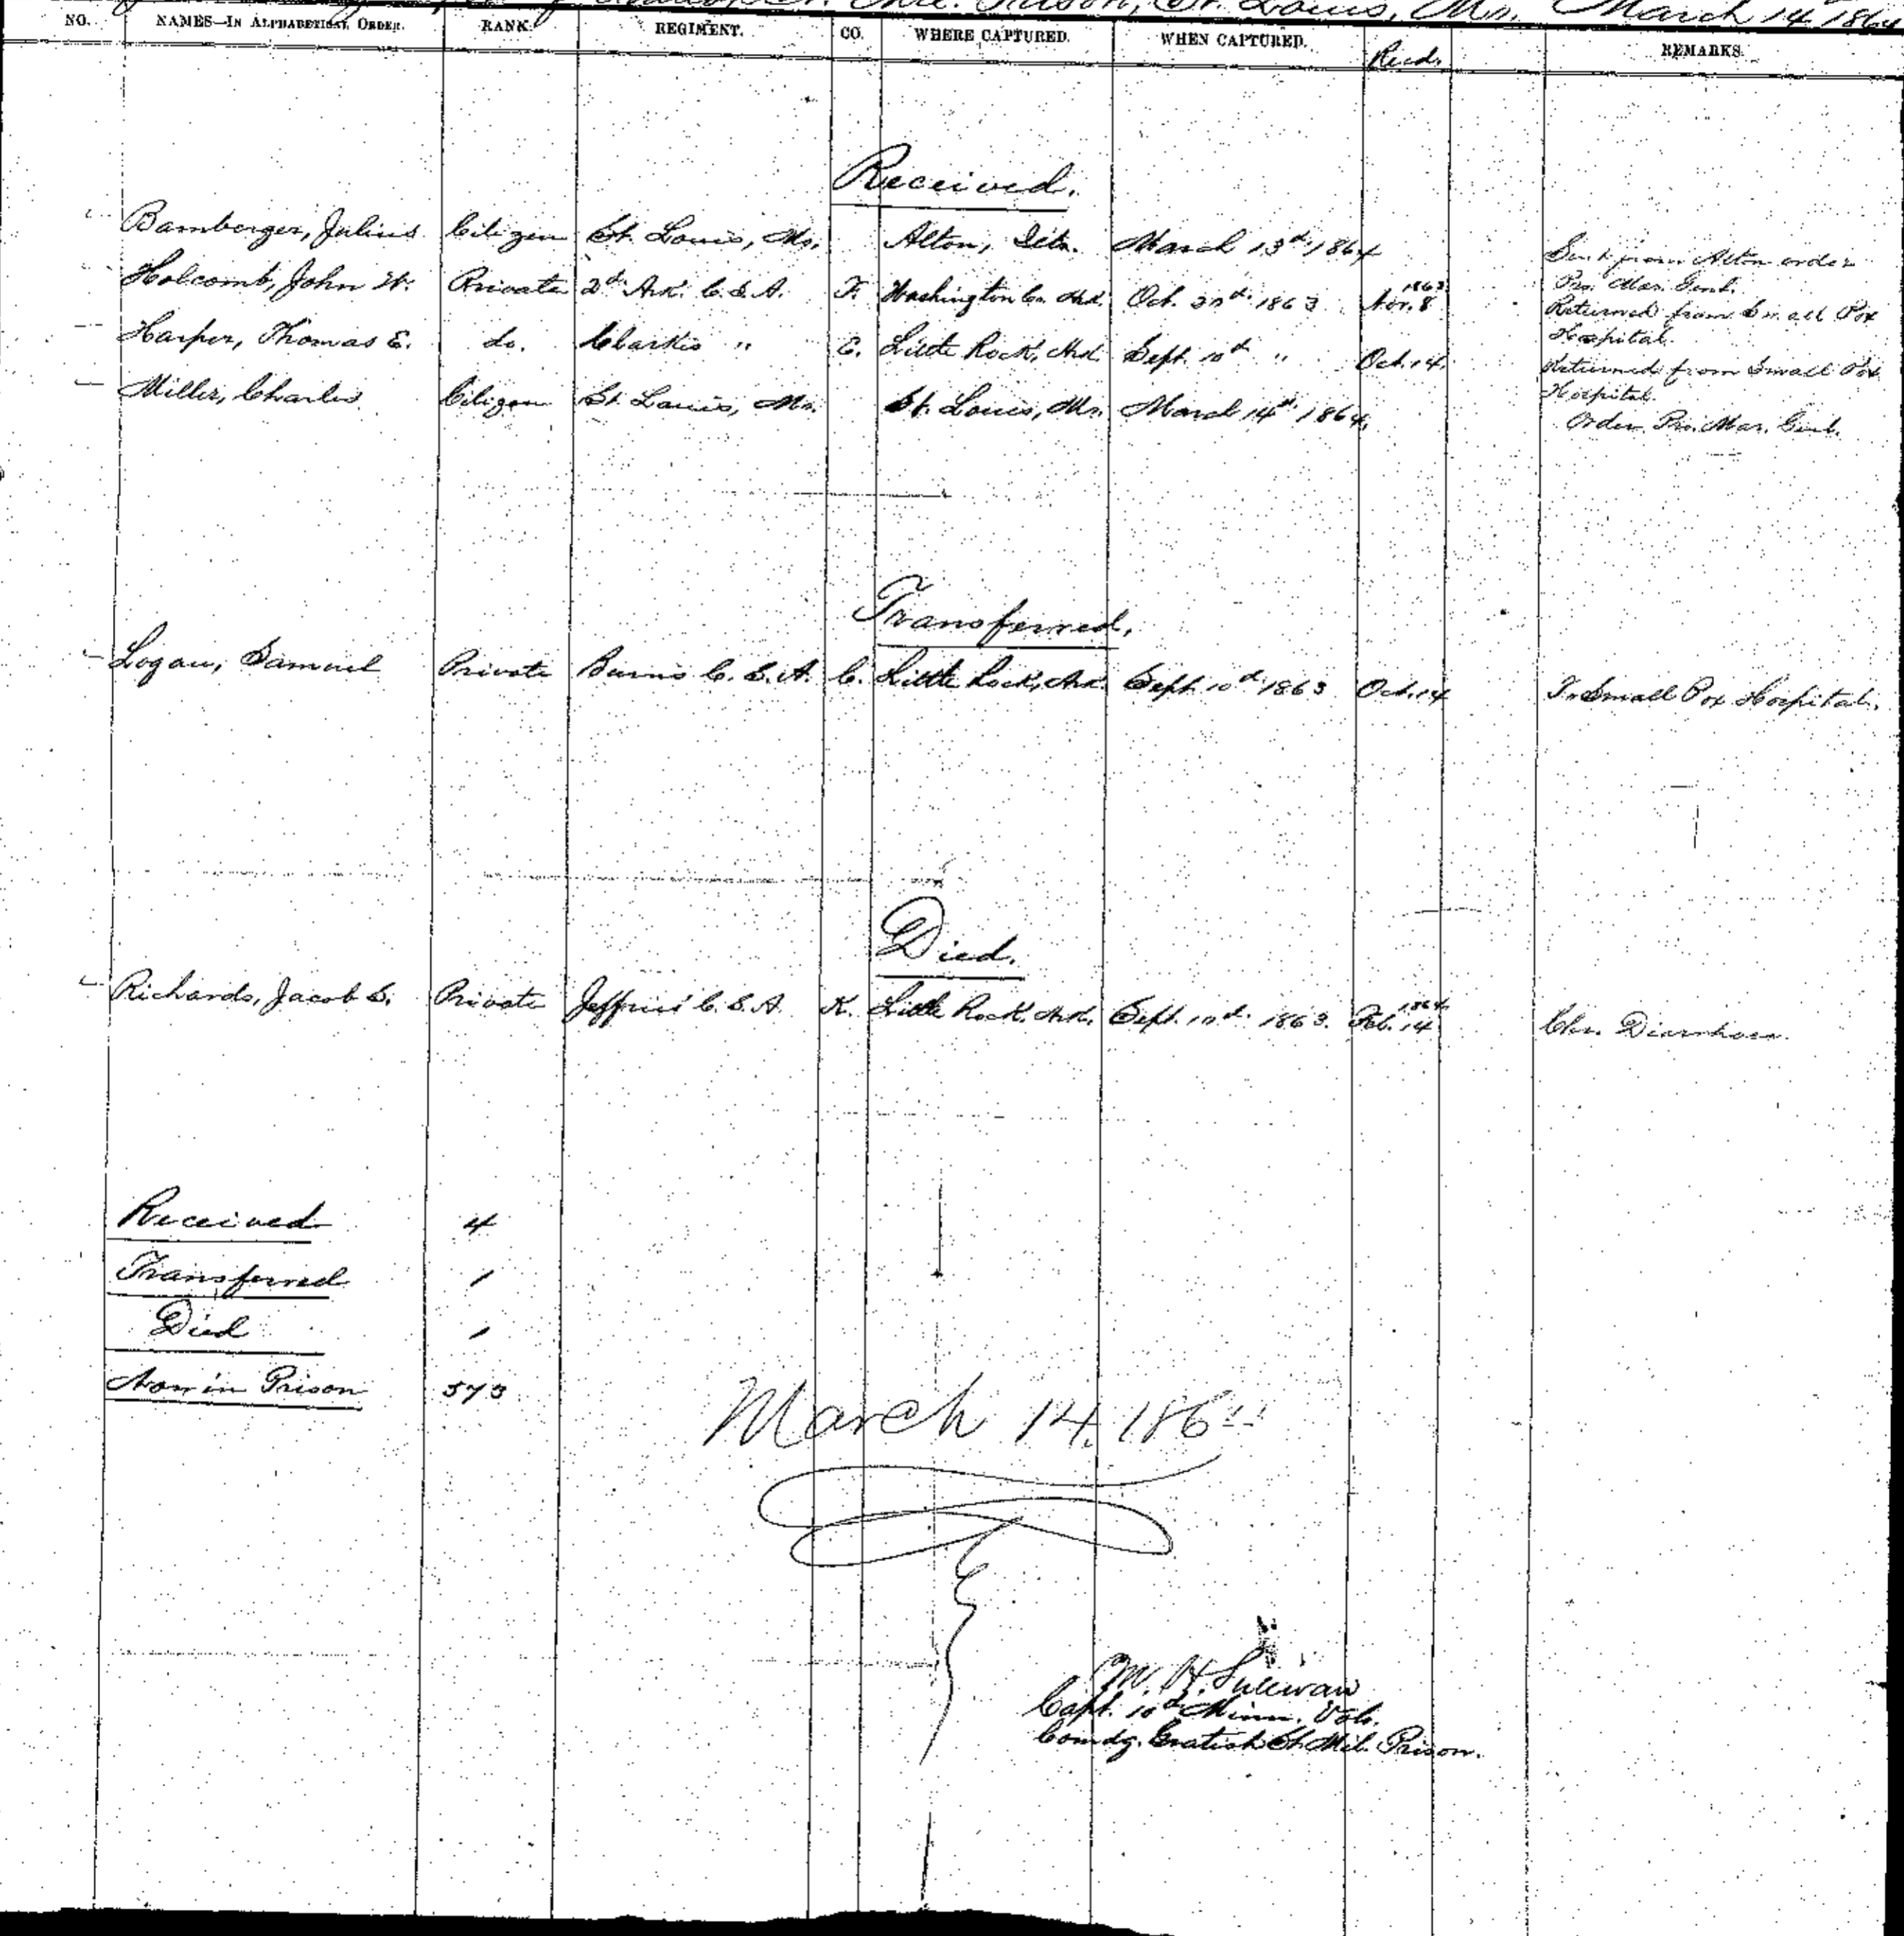 Mil. Prison, St. Louis, Mo. March 14 1864
NO. NAMES—IN ALPHABETICAL ORDER. RANK. REGIMENT. CO. WHERE CAPTURED. WHEN CAPTURED. Recd. REMARKS.
Received.
Bamberger, Julius Citizen St. Louis, Mo. Alton, Ills. March 13th 1864 Sent from Alton order
Pro. Mar. Genl.
Holcomb, John W. Private 2d Ark. C.S.A. F. Washington Co. Ark. Oct. 1863 1863 Nov. 8 Returned from Small Pox
Hospital.
Harper, Thomas E. do. Clarkis " E. Little Rock, Ark. Sept. 10th " Oct. 14. Returned from Small Pox
Hospital.
Miller, Charles Citizen St. Louis, Mo. St. Louis, Mo. March 14th 1864. Order Pro. Mar. Genl.
Transferred.
Logan, Samuel Private Burns C.S.A. C. Little Rock, Ark. Sept. 10th 1863 Oct. 14 To Small Pox Hospital.
Died.
Richards, Jacob S. Private Jeffries' C.S.A. K. Little Rock, Ark. Sept. 10th 1863. 1864 Feb. 14 Chr. Diarrhoea.
Received 4
Transferred 1
Died 1
Now in Prison 573
March 14, 186
W. H. Sullivan
Capt. 10th Minn. Vols.
Comdg. Gratiot St. Mil. Prison.